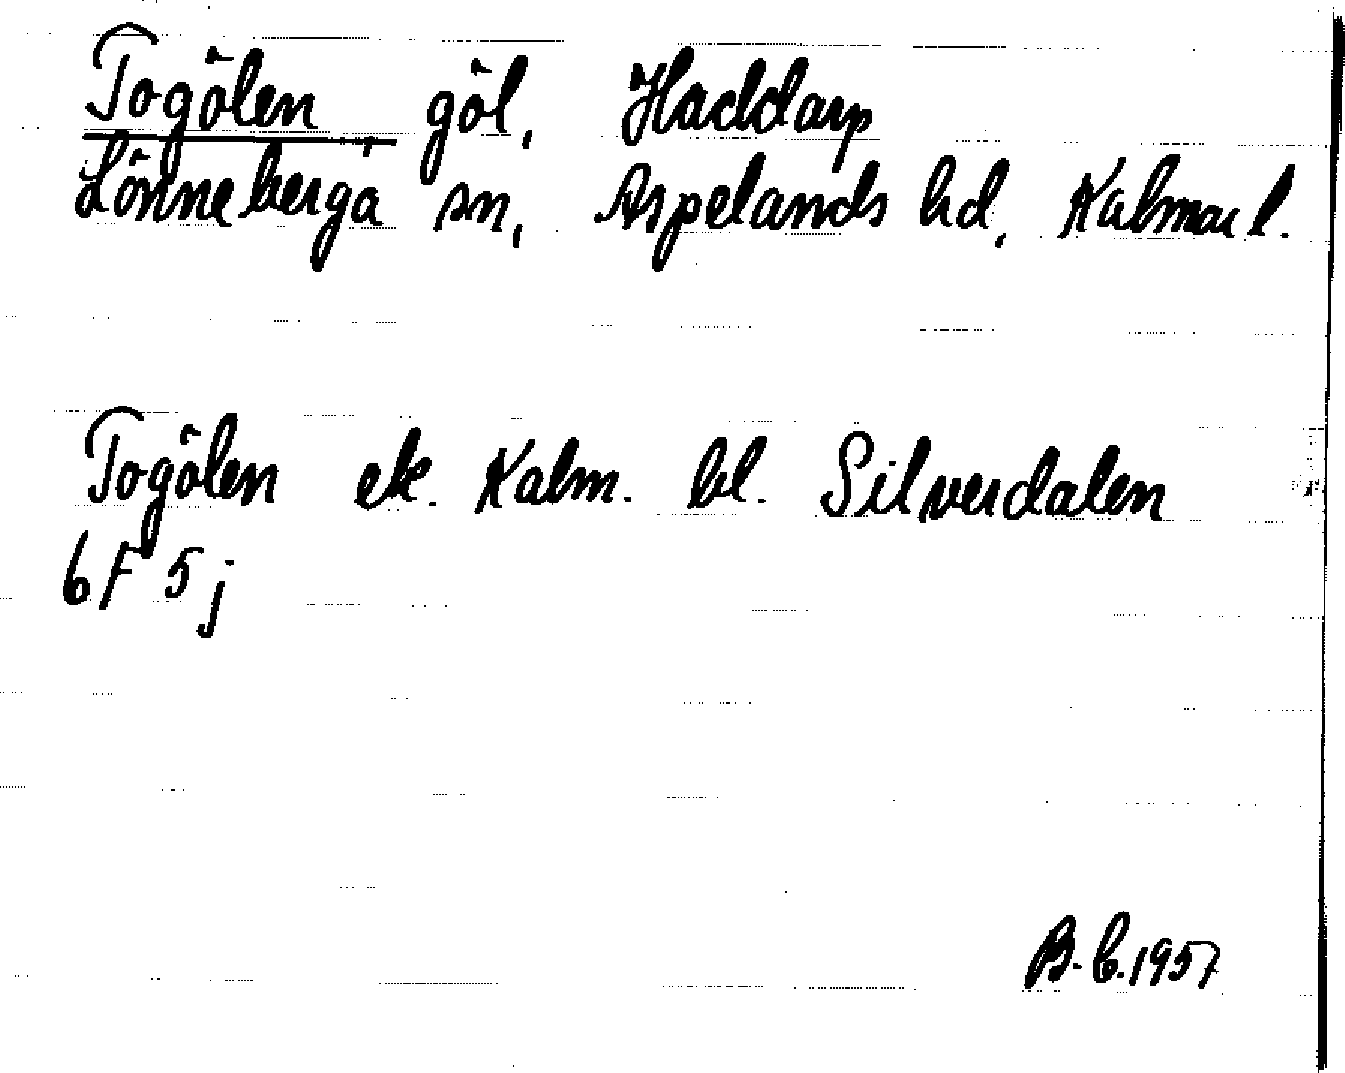 Togölen göl, Haddarp
Lönneberga sn, Aspelands hd, Kalmar l.
Togölen ek. Kalm. bl. Silverdalen
6F 5j
B-b. 1957